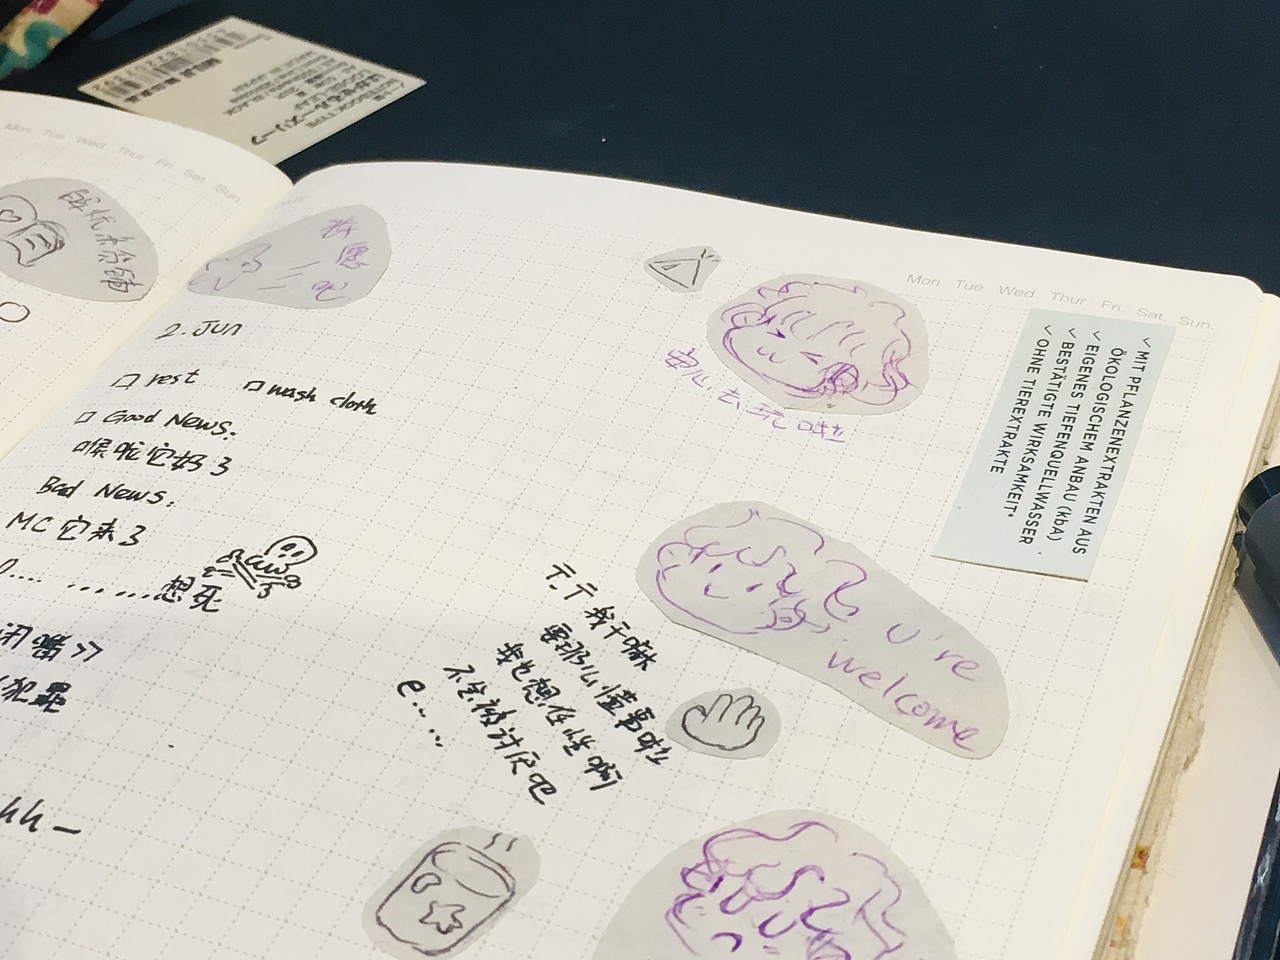 Mon Tue Wed Thur Fri Sat Sun
MADE IN JAPAN
2. Jun
□ rest □ wash cloth
□ Good News.
喉咙它好了
Bad News.
MC 它来了
想死
闭嘴》
犯罪
hh –
Mon Tue Wed. Thur Fri Sat Sun.
去玩啦
✓ MIT PFLANZENEXTRAKTEN AUS
ÖKOLOGISCHEM ANBAU (kbA)
✓ EIGENES TIEFENQUELLWASSER
✓ BESTÄTIGTE WIRKSAMKEIT*
✓ OHNE TIEREXTRAKTE
u're
welcome
亍亍我干嘛
要那么懂事啦
我也想任性啊
不会被讨厌吧
e....